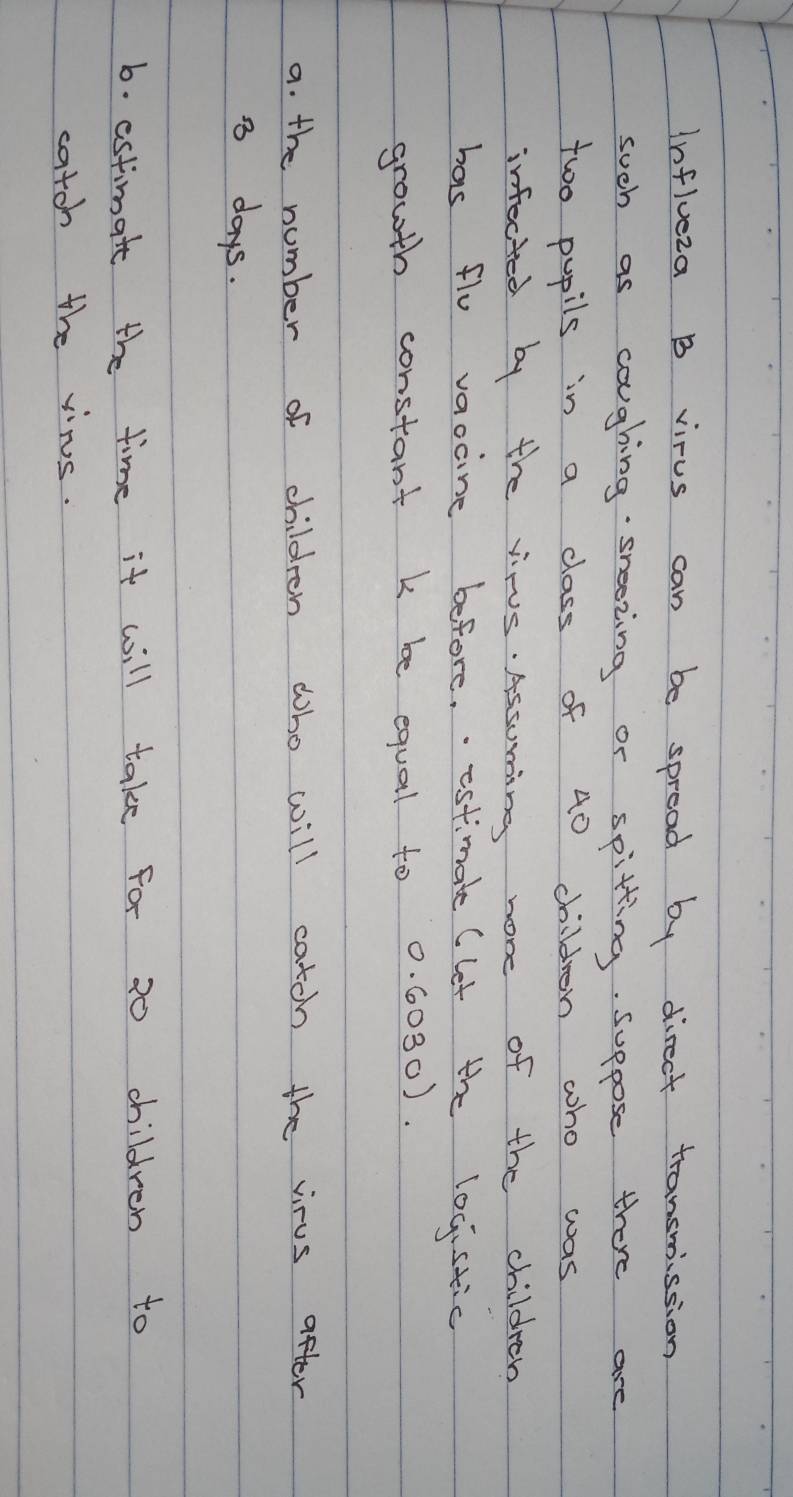 Influeza B virus can be spread by direct transmission
such as coughing. sneezing or spitting. Suppose there are
two pupils in a class of 40 children who was
infected by the virus. Assuming none of the children
has flu vaccine before, . estimate (let the logistic
growth constant k be equal to 0.6030).
a. the number of children who will catch the virus after
3 days.
b. estimate the time it will take for 20 children to
catch the virus.